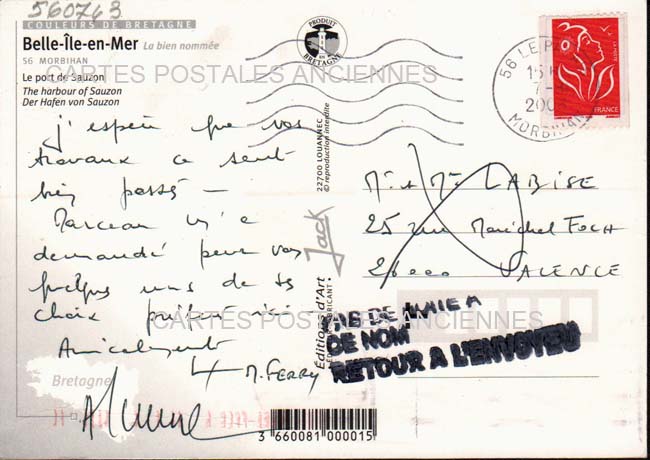 560763
COULEURS DE BRETAGNE
Belle-Île-en-Mer La bien nommée
56 MORBIHAN
Le port de Sauzon
The harbour of Sauzon
Der Hafen von Sauzon
PRODUIT
BRETAGNE
CARTES POSTALES ANCIENNES
56 LE P
15 H
7-
200
MORBIHAN
LA POSTE
FRANCE
j'espère que vos
travaux ce sont
bien passés -
Marceau m'a
demandé pour vous
quelques uns de ts
choix
Amicalement
M. FERRY
22700 LOUANNEC
© reproduction interdite
Éditions d'Art Jack
ÉDITEUR FABRICANT
Mr & Mme LABISE
25 rue Maréchal FOCH
26000 VALENCE
CARTES POSTALES ANCIENNES
PAS DE BOITE A
CE NOM
RETOUR A L'ENVOYEU
Bretagne
3 660081 000015